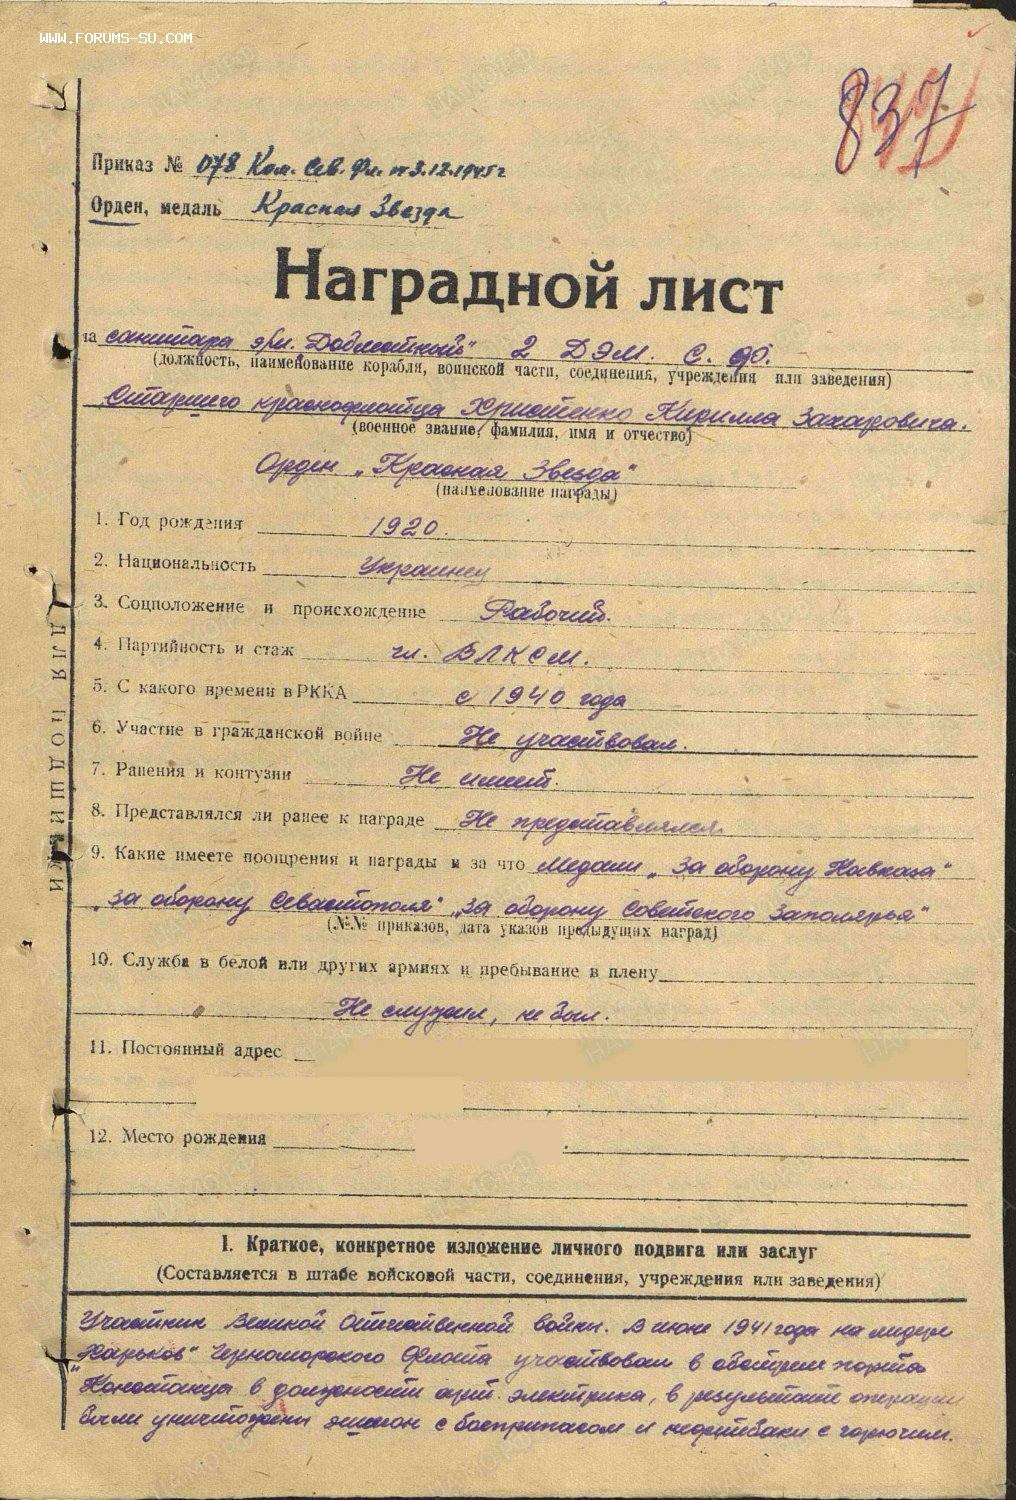 WWW.FORUMS-SU.COM
837
Приказ № 078 Ком. Сев. Фл. от 3.12.1945 г
Орден, медаль Красная Звезда
Наградной лист
на санитара э/м. „Доблестный" 2 ДЭМ. С. Ф.
(должность, наименование корабля, воинской части, соединения, учреждения или заведения)
Старшего краснофлотца Христенко Кирилла Захаровича.
(военное звание, фамилия, имя и отчество)
Орден „Красная Звезда"
(наименование награды)
1. Год рождения 1920.
2. Национальность Украинец
3. Соцположение и происхождение Рабочий.
4. Партийность и стаж чл. ВЛКСМ.
5. С какого времени в РККА с 1940 года
6. Участие в гражданской войне Не участвовал.
7. Ранения и контузии Не имеет.
8. Представлялся ли ранее к награде Не представлялся.
9. Какие имеет поощрения и награды и за что Медали „За оборону Кавказа"
„За оборону Севастополя" „За оборону Советского Заполярья"
(№№ приказов, дата указов предыдущих наград)
10. Служба в белой или других армиях и пребывание в плену
Не служил, не был.
11. Постоянный адрес
12. Место рождения
ДЛЯ ПОДШИВКИ
I. Краткое, конкретное изложение личного подвига или заслуг
(Составляется в штабе войсковой части, соединения, учреждения или заведения)
Участник Великой Отечественной войны. В июне 1941 года на лидере
„Харьков" Черноморского Флота участвовал в обстреле порта
Констанцы в должности арт. электрика, в результате операции
были уничтожены эшелон с боеприпасом и нефтебаки с горючим.